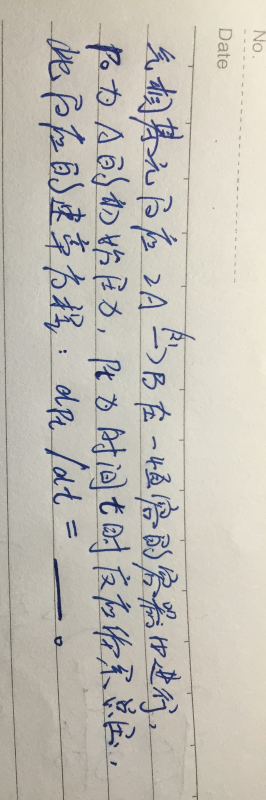 No.
Date
气相基元反应 2A —(k)→ B 在一恒容的容器中进行,
P₀为A的初始压力, Pt为时间t时反应体系总压,
此反应的速率方程: dPt/dt = ____。